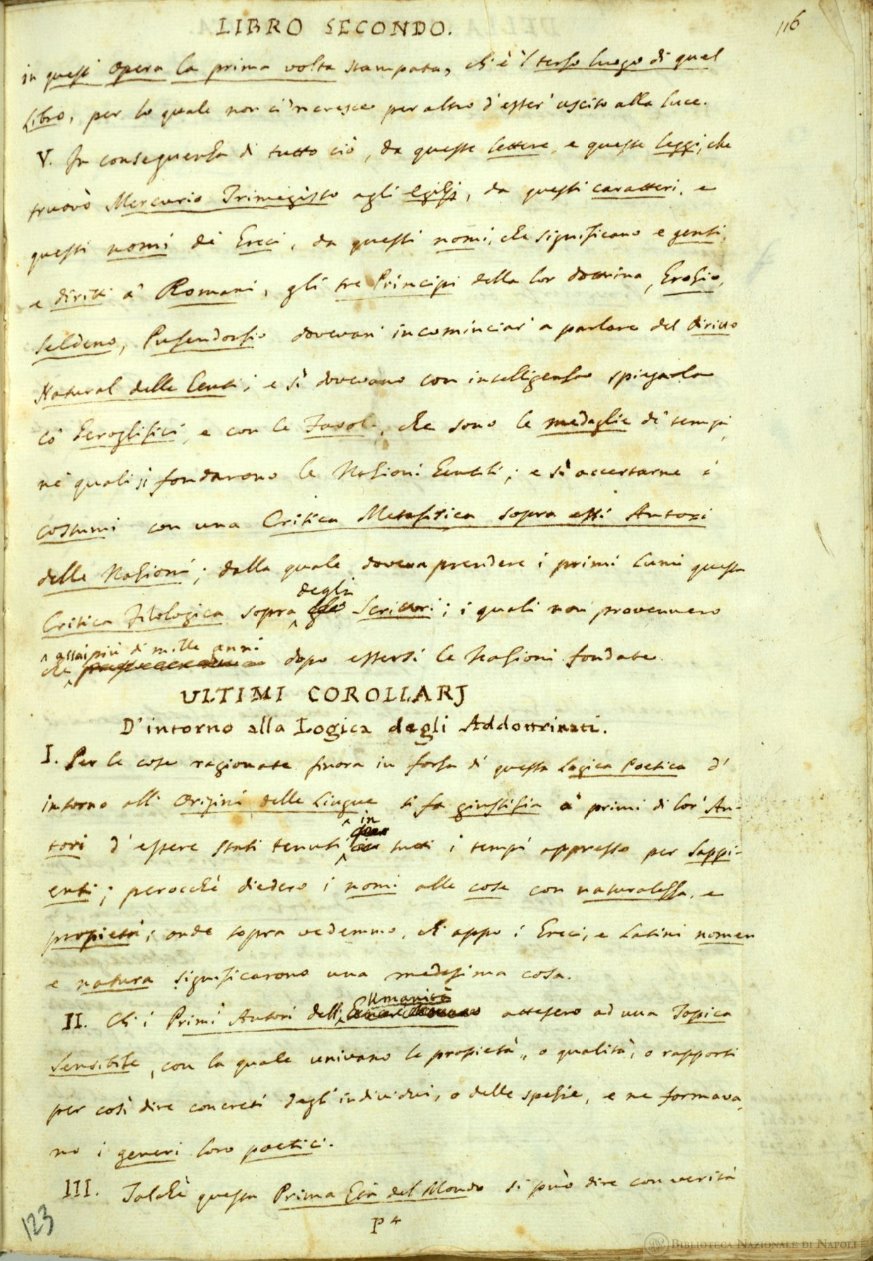 LIBRO SECONDO.
116
in quest' opera la prima volta stampata, ch'è 'l terzo luogo di quel
Libro, per lo quale non ci 'ncresce per altro d'esser' uscito alla luce.
V. In conseguenza di tutto ciò, da queste lettere, e queste leggi, che
truovò Mercurio Trimegisto agli Egizj, da questi caratteri, e
questi nomi de' Greci, da questi nomi, che significano e genti,
e diritti a' Romani, gli tre Principi della lor dottrina, Grozio,
Seldeno, Pufendorfio dovevan' incominciar' a parlare del diritto
Natural delle Genti; e sì dovevano con intelligenza spiegarla
co' Geroglifici, e con le Favole, che sono le medaglie de' tempi,
ne' quali si fondarono le Nazioni Gentili; e sì accertarne i
costumi con una Critica Metafisica sopra essi Autori
delle Nazioni; dalla quale doveva prendere i primi lumi questa
degli
Critica Filologica sopra Scrittori; i quali non provennero
assai più di mille anni
che dopo essersi le Nazioni fondate.
ULTIMI COROLLARJ
D'intorno alla Logica degli Addottrinati.
I. Per le cose ragionate finora in forza di questa Logica Poetica d'
intorno all' Origini delle Lingue si fa giustizia a' primi di lor' Au-
in
tori d'essere stati tenuti tutti i tempi appresso per Sappi-
enti; perocchè diedero i nomi alle cose con naturalezza, e
propietà; onde sopra vedemmo, ch'appo i Greci, e Latini nomen
e natura significarono una medesima cosa.
Umanità
II. Ch'i Primi Autori dell' attesero ad una Topica
Sensibile, con la quale univano le propietà, o qualità, o rapporti
per così dire concreti degl' individui, o delle spezie, e ne formava-
no i generi loro poetici.
III. Talchè questa Prima Età del Mondo si può dire con verità
P 4
123
BIBLIOTECA NAZIONALE DI NAPOLI